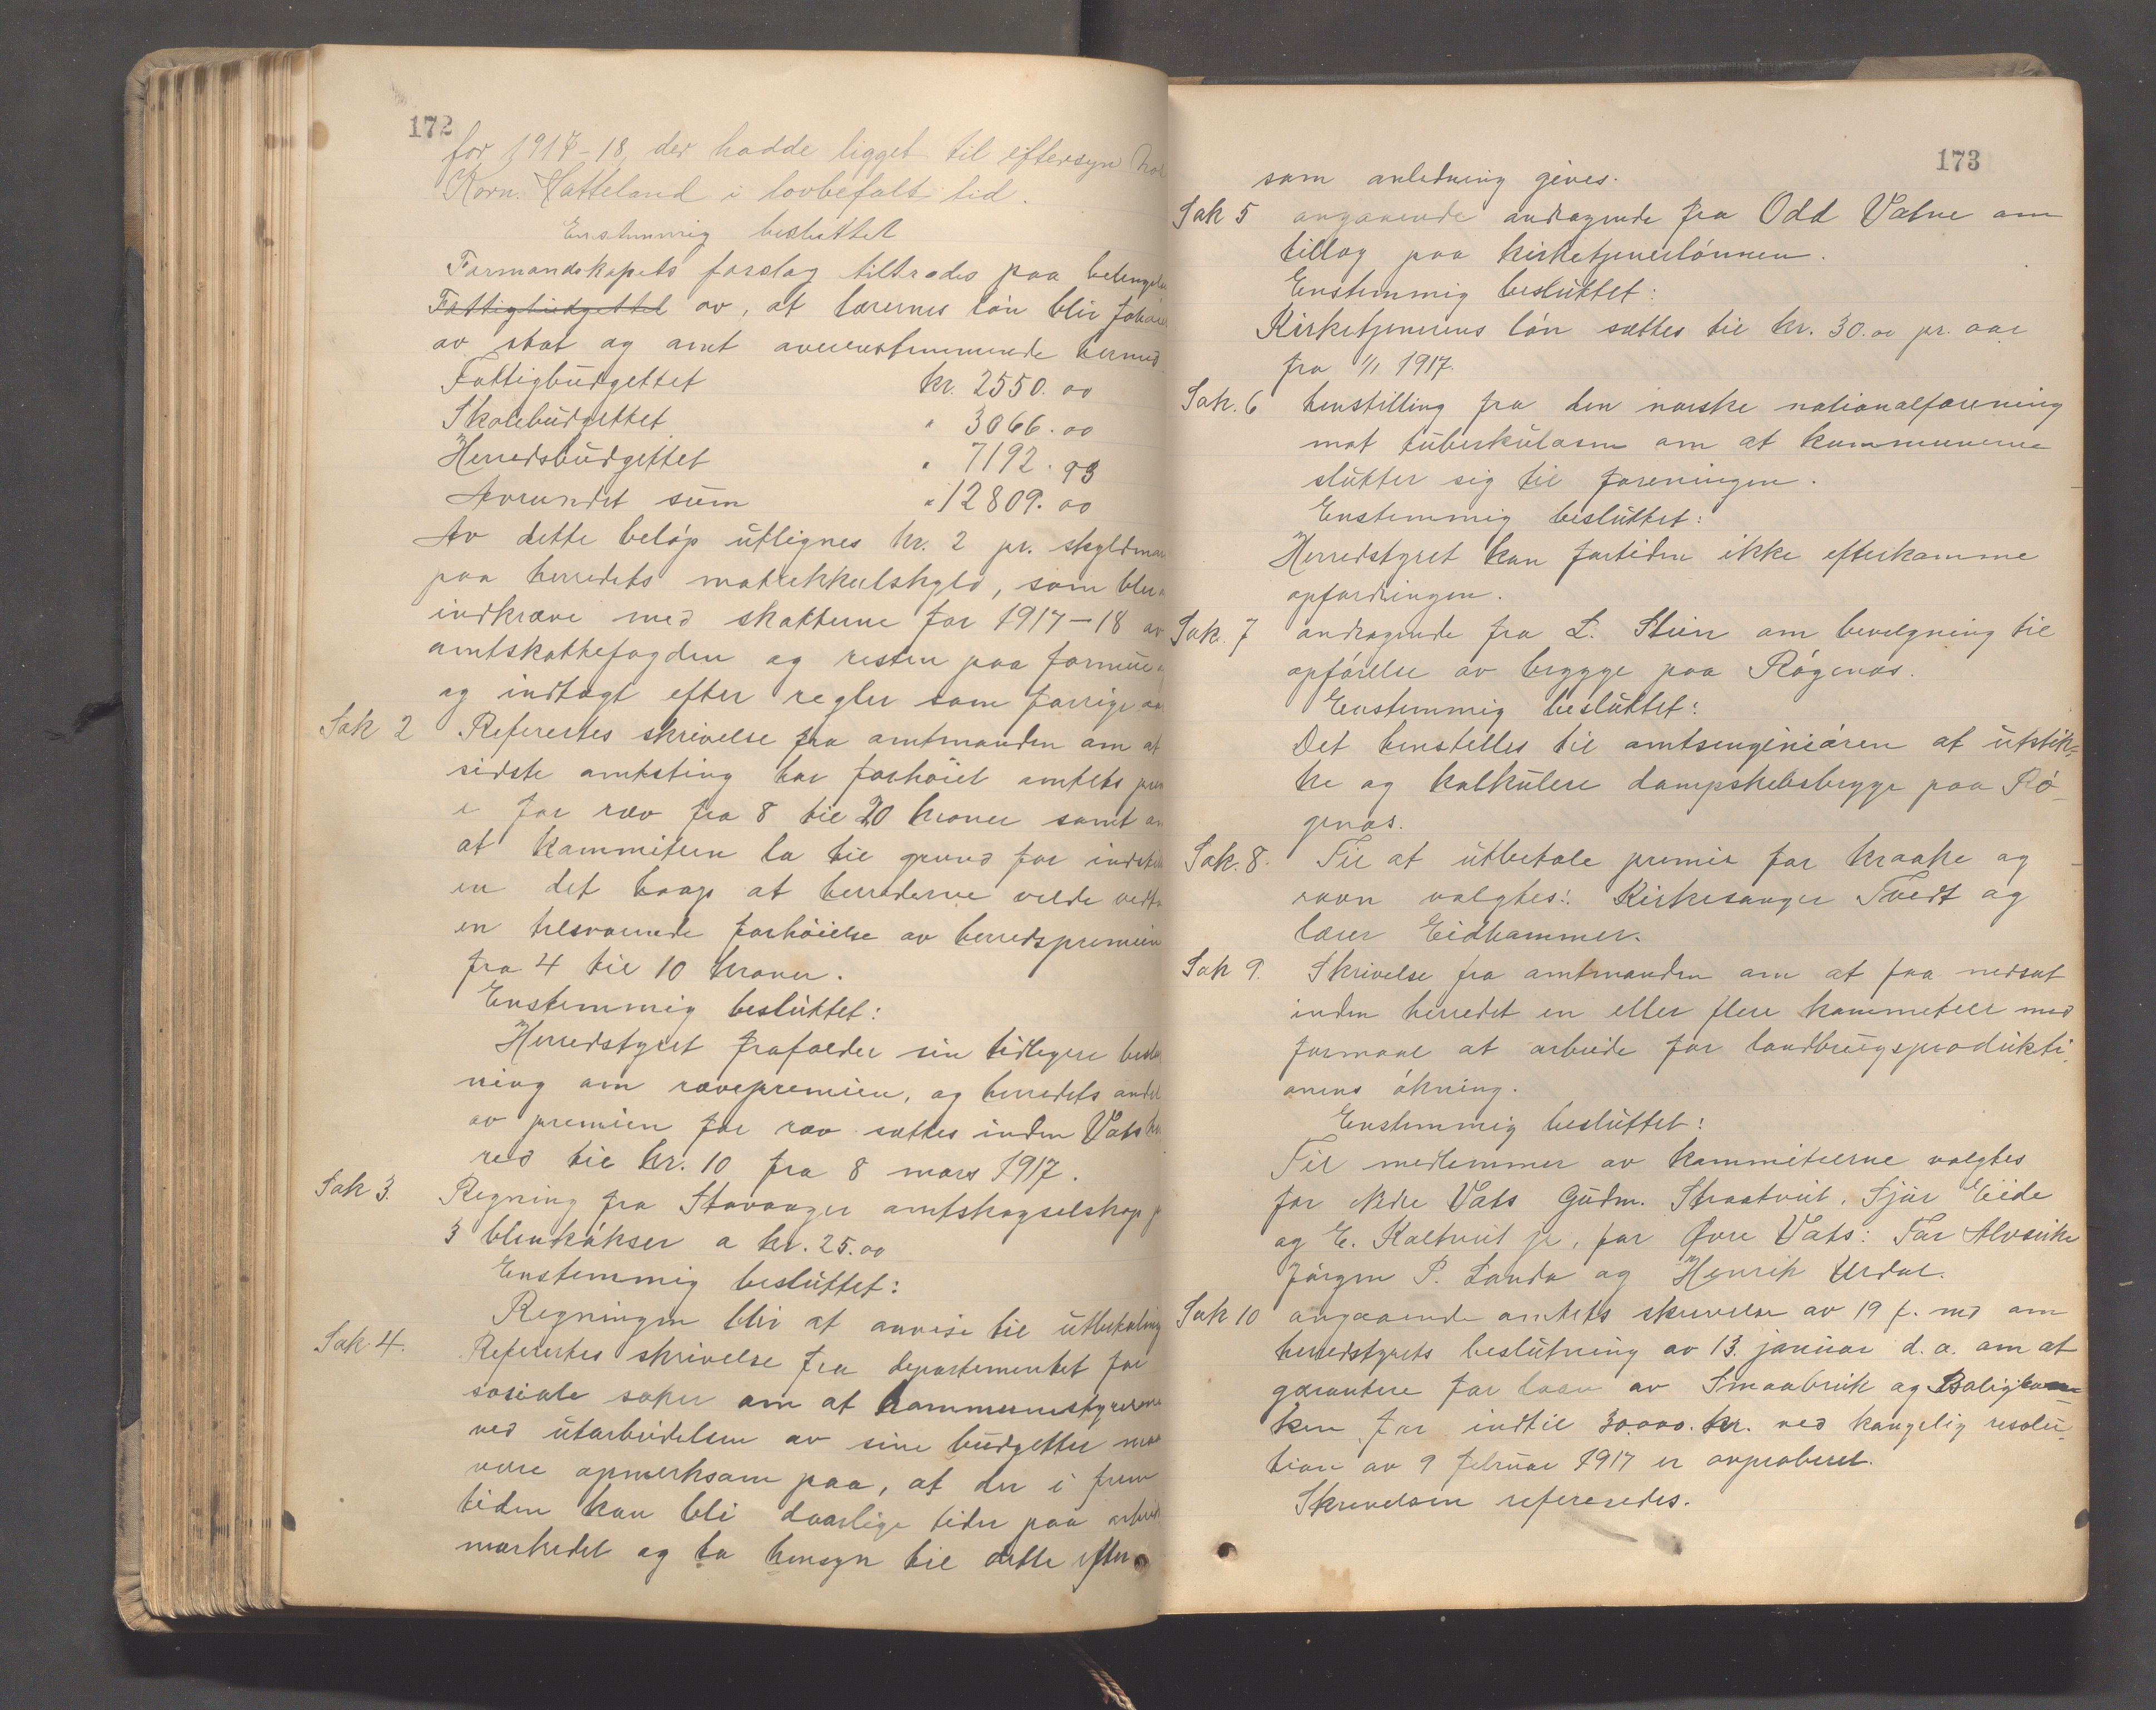 172
for 1917-18 der hadde ligget til eftersyn hos
Korn. Hatteland i lovbefalt tid.
Enstemmig besluttet
Formandskapets forslag tiltrædes paa betingelse
Fattigbudgettet av, at lærernes løn blir
av stat og amt overenstemmende hermed.
Fattigbudgettet kr. 2550.00
Skolebudgettet " 3066.00
Herredsbudgettet " 7192.93
Avrundet sum " 12809.00
Av dette beløp utlignes kr. 2 pr. skyldmark
paa herredets matrikkelskyld, som blir a
indkræve med skatterne for 1917-18 av
amtskattefogden og resten paa formue
og indtægt efter regler som forrige aar
Sak 2 Referertes skrivelse fra amtmanden om at
sidste amtsting har forhøiet amtets prem
i for ræv fra 8 til 20 kroner samt om
at kommiteen la til grund for indstil
en det haap at herrederne vilde vedta
en tilsvarende forhøielse av herredspremien
fra 4 til 10 kroner.
Enstemmig besluttet:
Herredstyret frafalder sin tidligere beslut
ning om rævepremien, og herredets andel
av premien for ræv sættes inden Vats her
red til kr. 10 fra 8 mars 1917.
Sak 3. Regning fra Stavanger amtskogselskap f
3 blinkøkser a kr. 25.00
Enstemmig besluttet:
Regningen blir at anvise til utbetaling
Sak 4. Referertes skrivelse fra departementet for
sosiale saker om at kommunestyrerne
ved utarbeidelsen av sine budgetter maa
være opmerksom paa, at der i frem
tiden kan bli daarlige tider paa arbeid
markedet og ta hensyn til dette efter
173
som anledning gives.
Sak 5 angaaende andragende fra Odd Vatne om
tillæg paa kirketjenerlønnen.
Enstemmig besluttet:
Kirketjenerens løn sættes til kr. 30.00 pr. aar
fra 1/1 1917.
Sak. 6 henstilling fra den norske nationalforening
mot tuberkulosen om at kommunerne
slutter sig til foreningen.
Enstemmig besluttet:
Herredstyret kan fortiden ikke efterkomme
opfordringen.
Sak. 7 andragende fra L. Stein om bevilgning til
opførelse av brygge paa Røgenæs.
Enstemmig besluttet:
Det henstilles til amtsingeniøren at utstik-
ke og kalkulere dampskibsbrygge paa Rø-
genæs.
Sak. 8. Til at utbetale premie for kraake og
ravn valgtes: Kirkesanger Tvedt og
lærer Eidhammer.
Sak 9. Skrivelse fra amtmanden om at faa nedsat
inden herredet en eller flere kommiteer med
formaal at arbeide for landbrugsprodukti-
onens økning.
Enstemmig besluttet:
Til medlemmer av kommiteerne valgtes
for Nedre Vats Gudm. Straatveit, Sjur Eide
og E. Kaltveit jr, for Øvre Vats: Tor Alvseike
Jørgen P. Landa og Henrik Urdal.
Sak 10 angaaende amtets skrivelse av 19 f. md om
herredstyrets beslutning av 13. januar d. a. om at
garantere for laan av Smaabruk og Boligban-
ken for indtil 30.000. kr. ved kongelig resolu-
tion av 9 februar 1917 er approberet.
Skrivelsen refereredes.